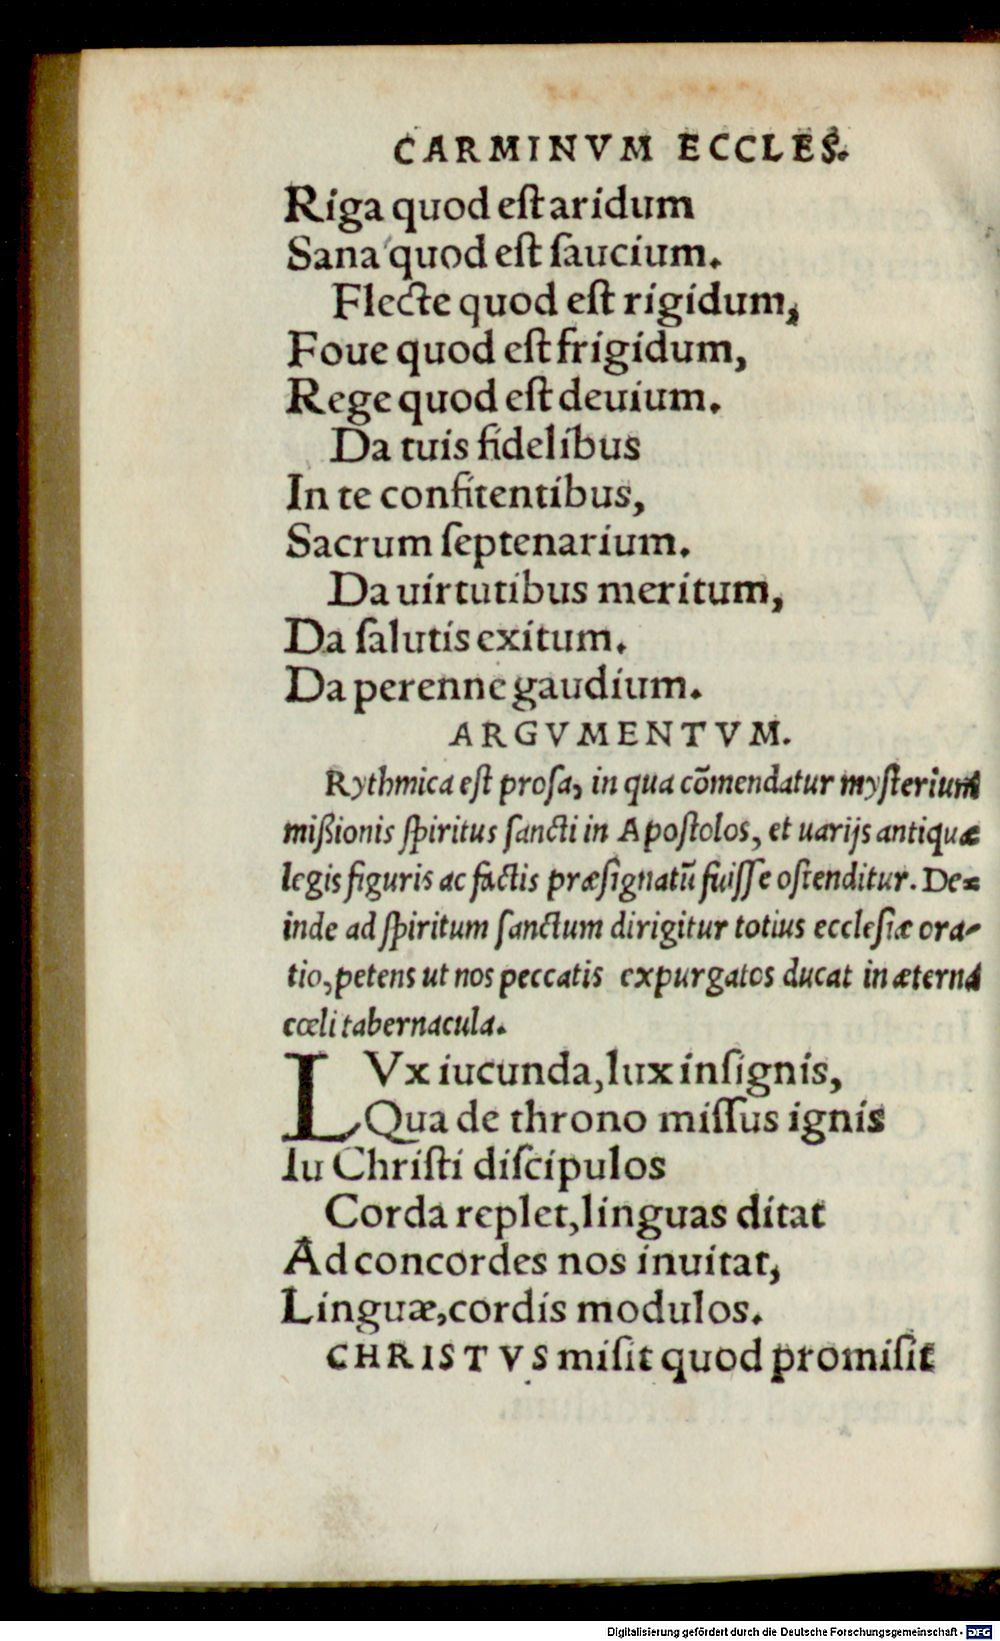 CARMINVM ECCLES.
Riga quod eſt aridum
Sana quod eſt ſaucium.
Flecte quod eſt rigidum,
Foue quod eſt frigidum,
Rege quod eſt deuium.
Da tuis fidelibus
In te confitentibus,
Sacrum ſeptenarium.
Da uirtutibus meritum,
Da ſalutis exitum.
Da perenne gaudium.
ARGVMENTVM.
Rythmica eſt proſa, in qua cõmendatur myſterium
mißionis ſpiritus ſancti in Apoſtolos, et uarijs antiquæ
legis figuris ac factis præſignatũ fuiſſe oſtenditur. De=
inde ad ſpiritum ſanctum dirigitur totius eccleſiæ ora-
tio, petens ut nos peccatis expurgatos ducat in æterna
cœli tabernacula.
LVx iucunda, lux inſignis,
Qua de throno miſſus ignis
Iu Chriſti diſcipulos
Corda replet, linguas ditat
Ad concordes nos inuitat,
Linguæ, cordis modulos.
CHRISTVS miſit quod promiſit
Digitalisierung gefördert durch die Deutsche Forschungsgemeinschaft - DFG